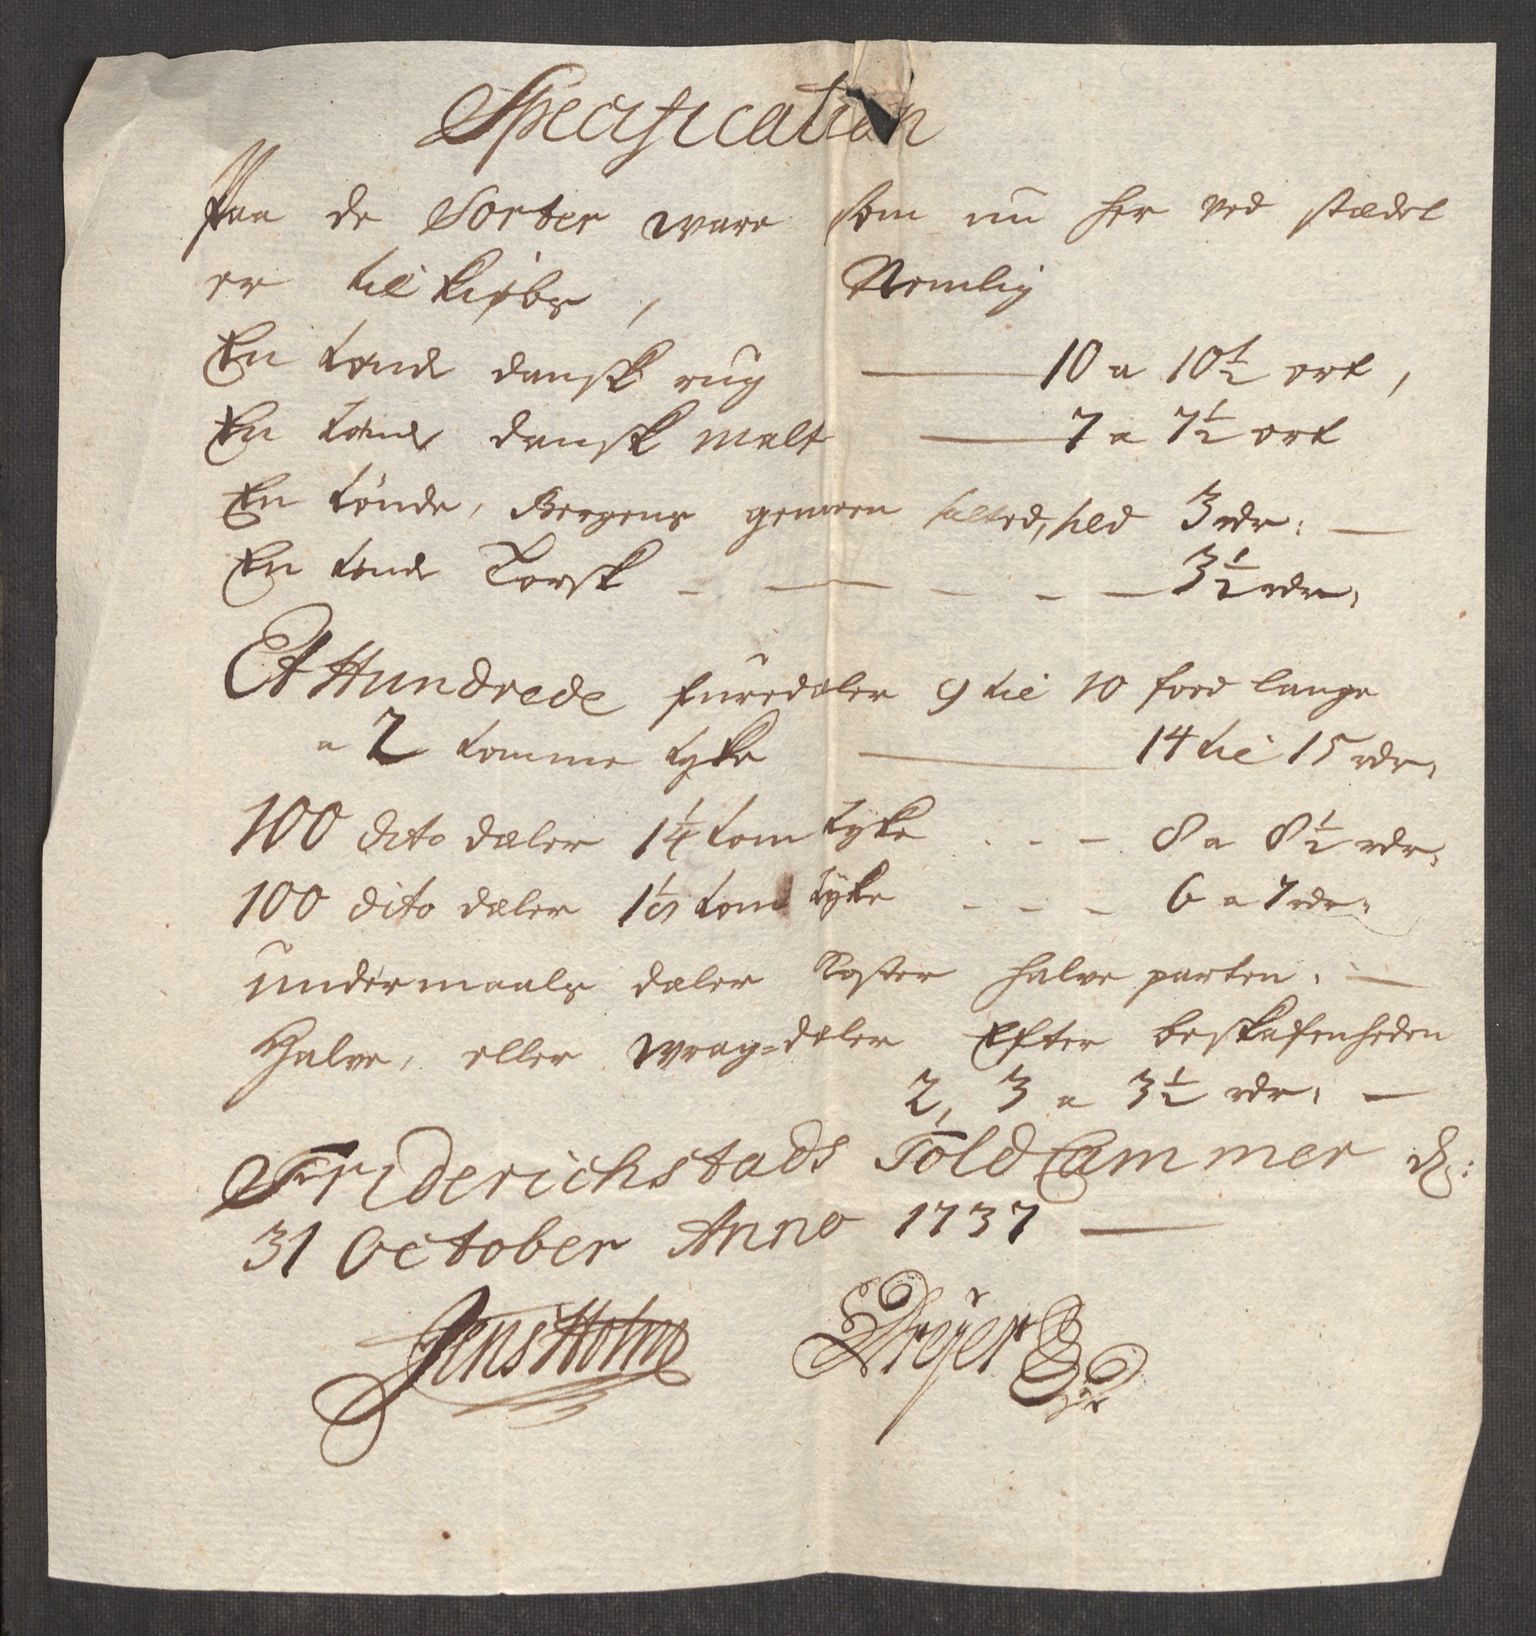 Specification
Paa de Sorter ware som nu her ved stædet
er til kiøbs, Nemlig
En tønde dansk rug 10 a 10½ ort,
En tønde dansk malt 7 a 7½ ort
En tønde, Bergens gemeen salted, sild 3 rdr: —
En tønde Torsk - — - - — 3½ rdr,
Et Hundrede furedæler 9 til 10 foed lange
a 2 tomme tyke 14 til 15 rdr,
100 dito dæler 1¼ tom tyke - - - 8 a 8½ rdr,
100 dito dæler tom tyke - - - 6 a 7 rdr,
undermaals dæler koster halve parten. —
Halve, eller wrag=dæler Efter beskafenheden
2, 3 a 3½ rdr, —
Friderichstads Told Cammer d:
31 October Anno 1737 —
Jens Holm Dreyer